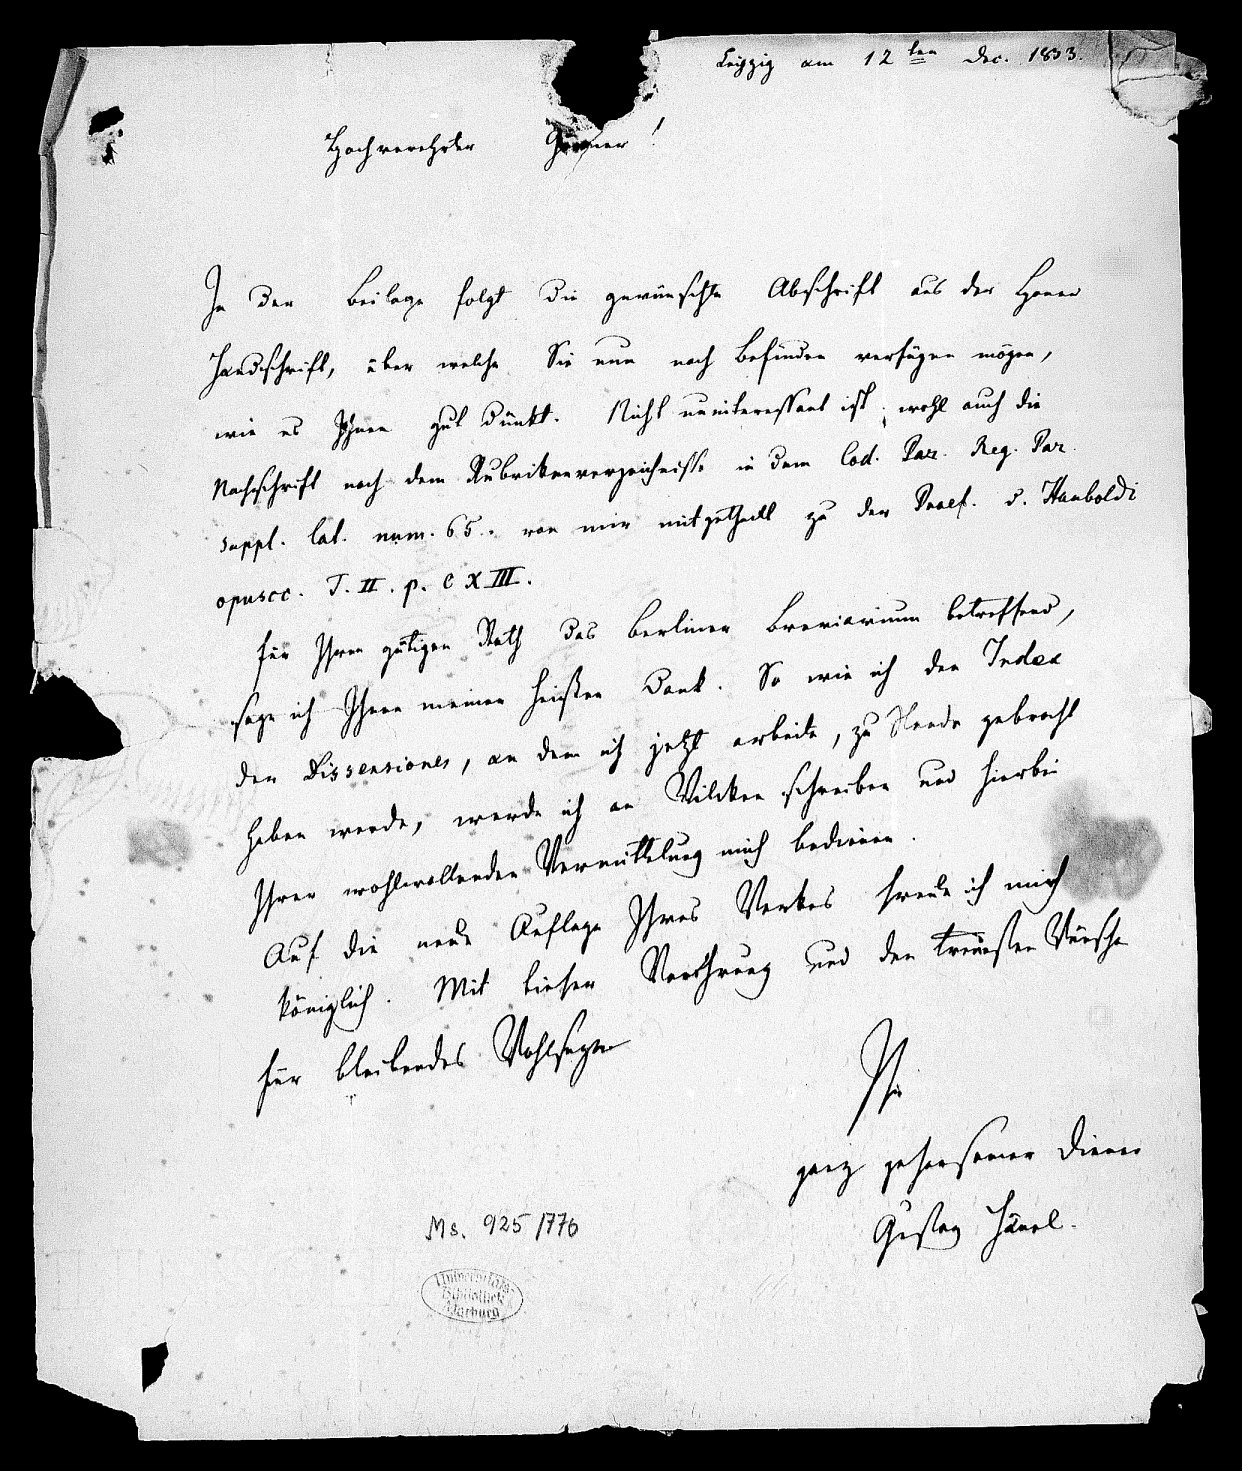 Leipzig am 12ten Dec. 1833.
Hochverehrter Gönner!
In der Beilage folgt die gewünschte Abschrift aus der
Handschrift, über welche Sie nun nach Befinden verfügen mögen,
wie es Ihnen gut dünkt. Nicht uninteressant ist wohl auch die
Nachschrift nach dem Rubrikenverzeichnisse in dem Cod. Par. Reg. Par.
suppl. lat. num. 65. von mir mitgetheilt zu der Praef. v. Hauboldi
opuscc. T. II. p. CXIII.
Für Ihren gütigen Rath das Berliner Breviarium betreffend,
sage ich Ihnen meinen heißen Dank. So wie ich den Index
der Dissensiones, an dem ich jetzt arbeite, zu Stande gebracht
haben werde, werde ich an Wilcken schreiben und hierbei
Ihrer wohlwollenden Vermittelung mich bedienen.
Auf die neue Auflage Ihres Werkes freue ich mich
königlich. Mit tiefer Verehrung und den treuesten Wünschen
für bleibendes Wohlseyn
Ihr
ganz gehorsamer Diener
Gustav Hänel.
Ms. 925/776
Universitäts-
Bibliothek
Marburg